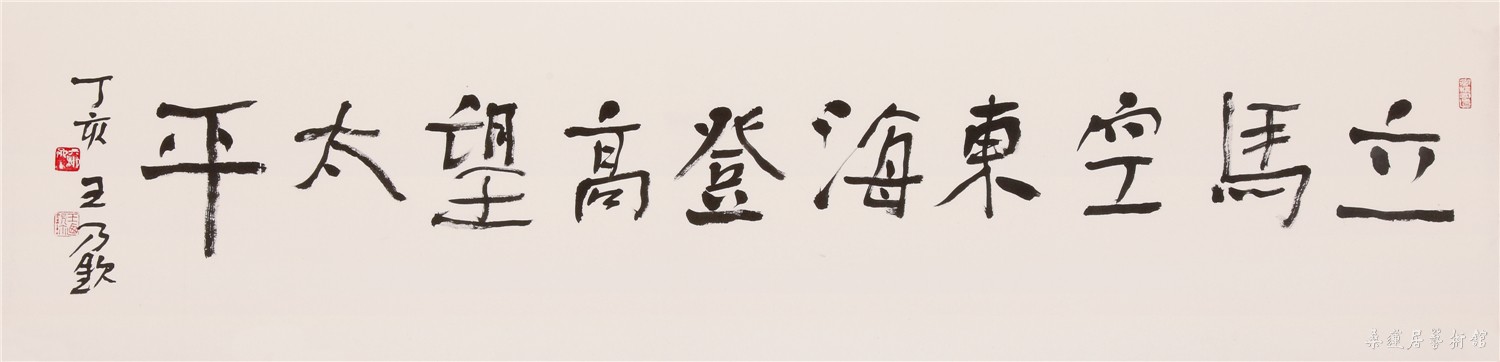 立馬空東海登高望太平
丁亥
王乃欽
桑蓮居藝術館